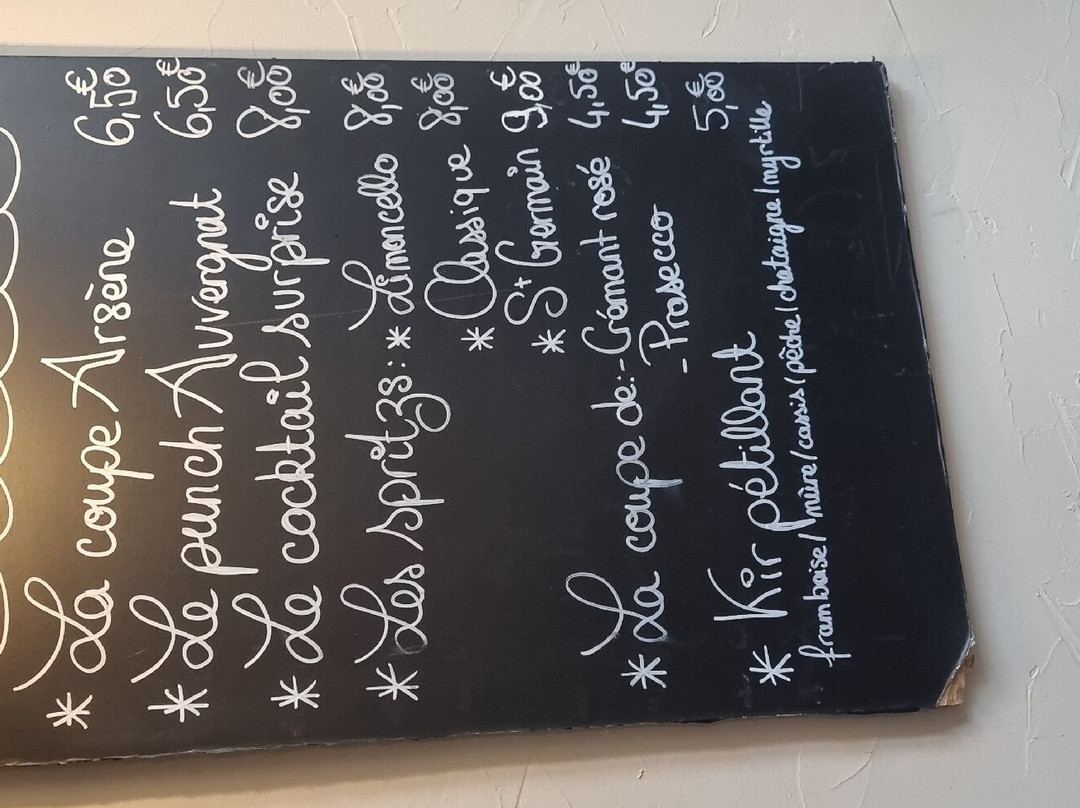 * La coupe Arsène 6,50€
* Le punch Auvergnat 6,50€
* Le cocktail surprise 8,00€
* Les spritzs : * Limoncello 8,00€
* Classique 8,00€
* St Germain 9,00€
* La coupe de : - Crémant rosé 4,50€
- Prosecco 4,50€
* Kir pétillant 5,00€
framboise / mûre / cassis / pêche / chataigne / myrtille